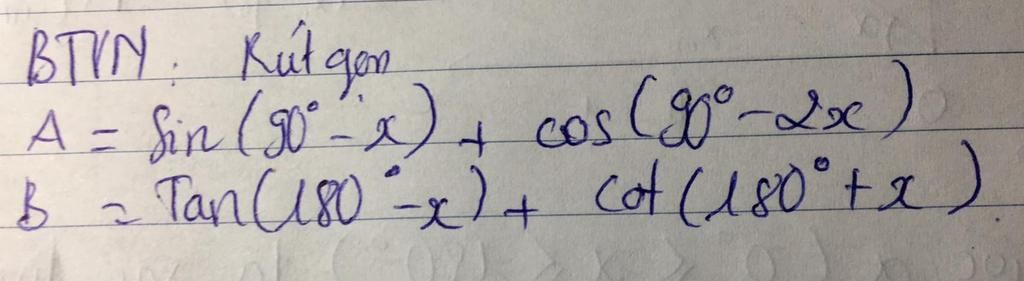 BTVN: Rút gọn
A = Sin(90° - x) + cos(90° - 2x)
B = Tan(180° - x) + Cot(180° + x).